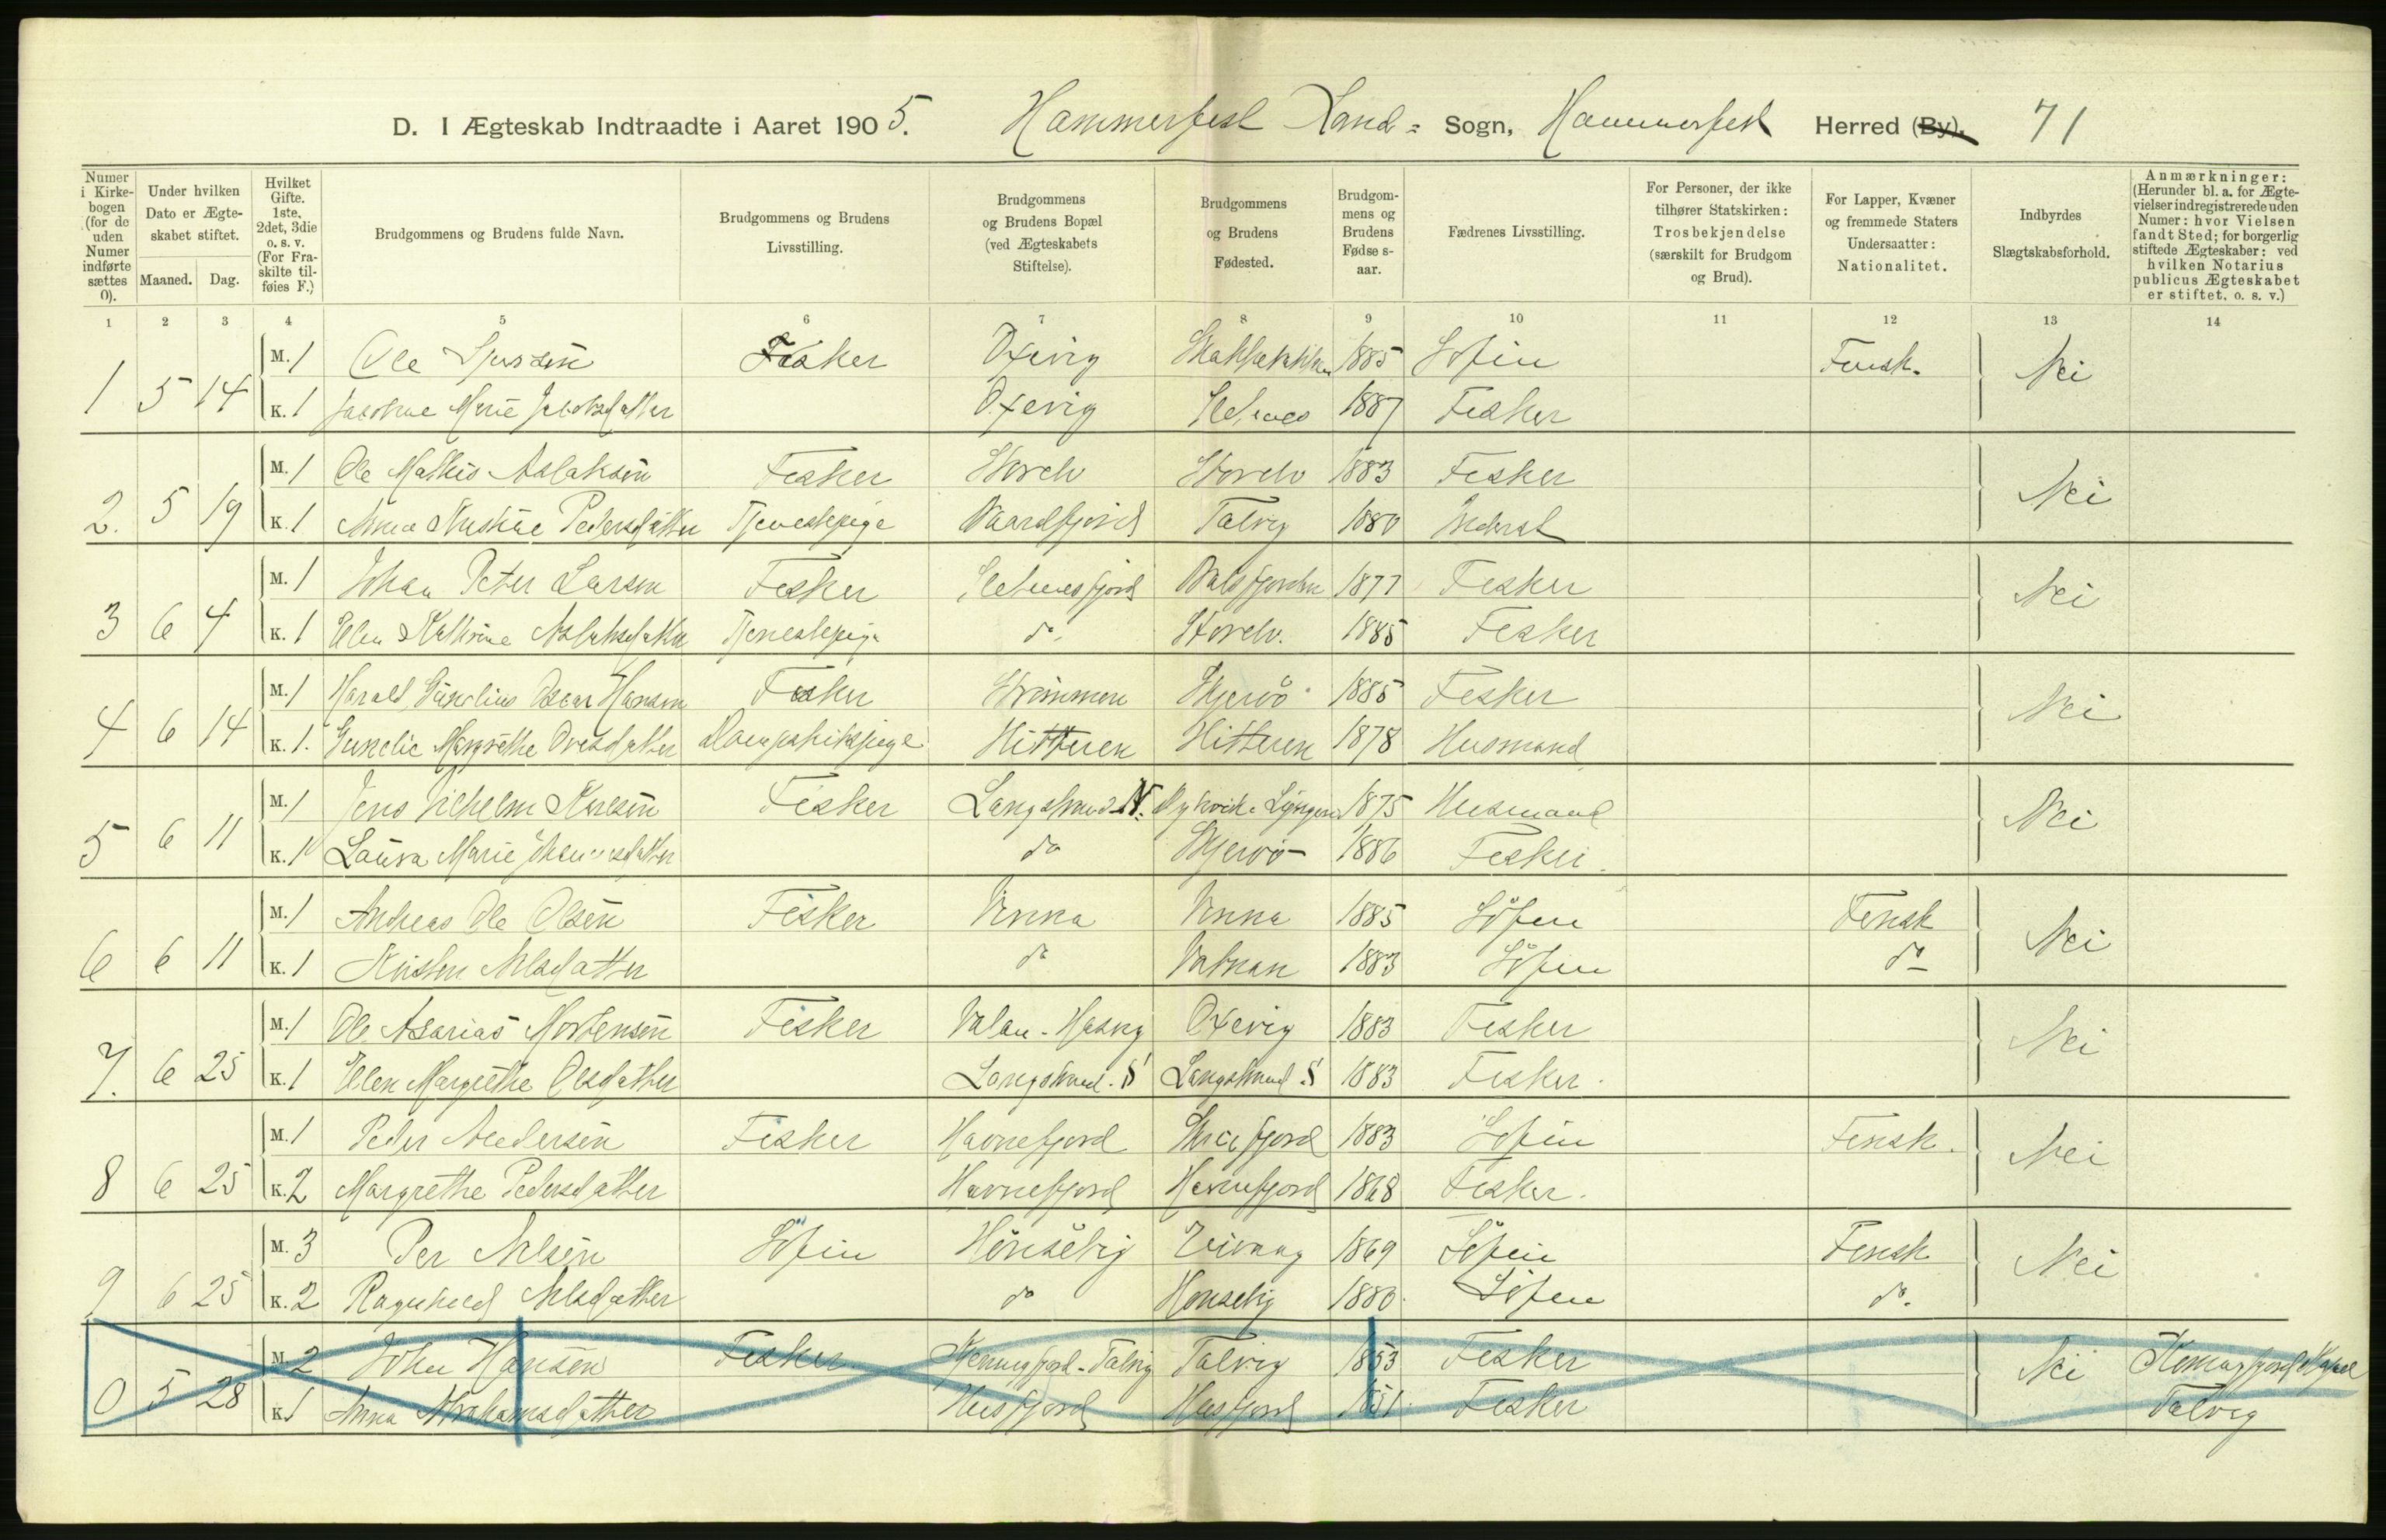 D. I Ægteskab Indtraadte i Aaret 1905. Hammerfest Land = Sogn, Hammerfest Herred (By). 71
Numer i Kirkebogen (for de uden Numer indførte sættes 0).
Under hvilken Dato er Ægteskabet stiftet.
Maaned. Dag.
Hvilket Gifte. 1ste, 2det, 3die o. s. v. (For Fraskilte tilføies F.)
Brudgommens og Brudens fulde Navn.
Brudgommens og Brudens Livsstilling.
Brudgommens og Brudens Bopæl (ved Ægteskabets Stiftelse).
Brudgommens og Brudens Fødested.
Brudgommens og Brudens Fødselsaar.
Fædrenes Livsstilling.
For Personer, der ikke tilhører Statskirken: Trosbekjendelse (særskilt for Brudgom og Brud).
For Lapper, Kvæner og fremmede Staters Undersaatter: Nationalitet.
Indbyrdes Slægtskabsforhold.
Anmærkninger: (Herunder bl. a. for Ægtevielser indregistrerede uden Numer: hvor Vielsen fandt Sted; for borgerlig stiftede Ægteskaber: ved hvilken Notarius publicus Ægteskabet er stiftet. o. s. v.)
1 2 3 4 5 6 7 8 9 10 11 12 13 14
M. 1 Ole Fisker Oxevig 1885 Söfin Finsk. Nei
1 5 14 K. 1 Marie Jakobsdatter Oxevig 1887 Fisker
M. 1 Ole Mathis Aslaksen Fisker Storelv Storelv 1883 Fisker Nei
2. 5 19 K. 1 Anna Kristine Pedersdatter Tjenestepige Vaardfjord Talvig 1880 Inderst
M. 1 Johan Peter Larsen Fisker Sletnesfjord Balsfjorden 1877 Fisker Nei
3 6 4 K. 1 Elen Kathrine Aslaksdatter Tjenestepige do. Storelv. 1885 Fisker
M. 1 Harald Oscar Hansen Fisker Strömmen Skjervö 1885 Fisker Nei
4 6 14 K. 1. Gunelie Margrethe Hitteren Hitteren 1878 Husmand
M. 1 Jens Vilhelm Karlsen Fisker Langstrand N. Lyngen 1875 Husmand Nei
5 6 11 K. 1 Laura Marie do Skjervö 1886 Fisker.
M. 1 Andreas Ole Olsen Fisker Vinna Vinna 1885 Söfin Finsk Nei
6 6 11 K. 1 Kirsten Nilsdatter do 1883 Söfin do
M. 1 Ole Asarias Mortensen Fisker Valan - Hasvig Oxevig 1883 Fisker Nei
7. 6 25 K. 1 Elen Margrethe Olsdatter Langstrand. S Langstrand S 1883 Fisker.
M. 1 Peder Andersen Fisker Havnefjord 1883 Söfin Finsk. Nei
8 6 25 K. 2 Margrethe Pedersdatter Havnefjord Havnefjord 1868 Fisker.
M. 3 Per Nilsen Söfin Hönseby 1869 Söfin Finsk Nei
9 6 25 K. 2 Ragnhild Nilsdatter do Hönseby 1880. Söfin do.
M. 2 John Hansen Fisker Talvig Talvig 1853 Fisker Nei Kapel
0 5 28 K. 1 Anna Abrahamsdatter Husfjord Husfjord 1851. Fisker Talvig